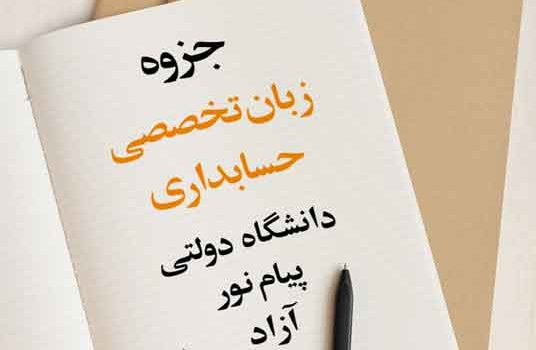 جزوه
زبان تخصصی
حسابداری
دانشگاه دولتی
پیام نور
آزاد